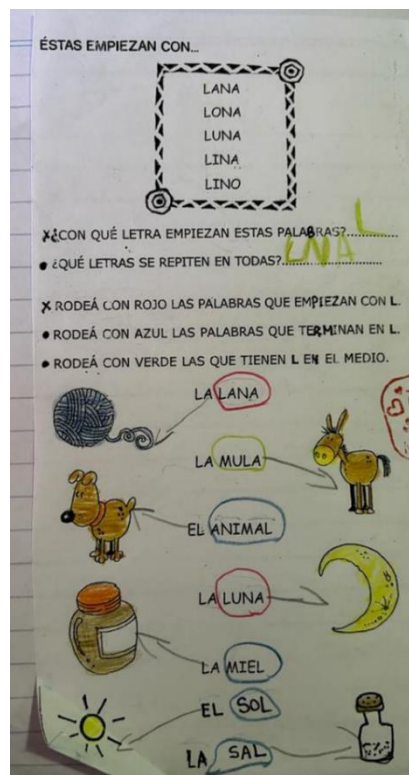 ÉSTAS EMPIEZAN CON...
LANA
LONA
LUNA
LINA
LINO
¿CON QUÉ LETRA EMPIEZAN ESTAS PALABRAS?.............. L
¿QUÉ LETRAS SE REPITEN EN TODAS?.............. LNA
RODEÁ CON ROJO LAS PALABRAS QUE EMPIEZAN CON L.
RODEÁ CON AZUL LAS PALABRAS QUE TERMINAN EN L.
RODEÁ CON VERDE LAS QUE TIENEN L EN EL MEDIO.
LA LANA
LA MULA
EL ANIMAL
LA LUNA
LA MIEL
EL SOL
LA SAL